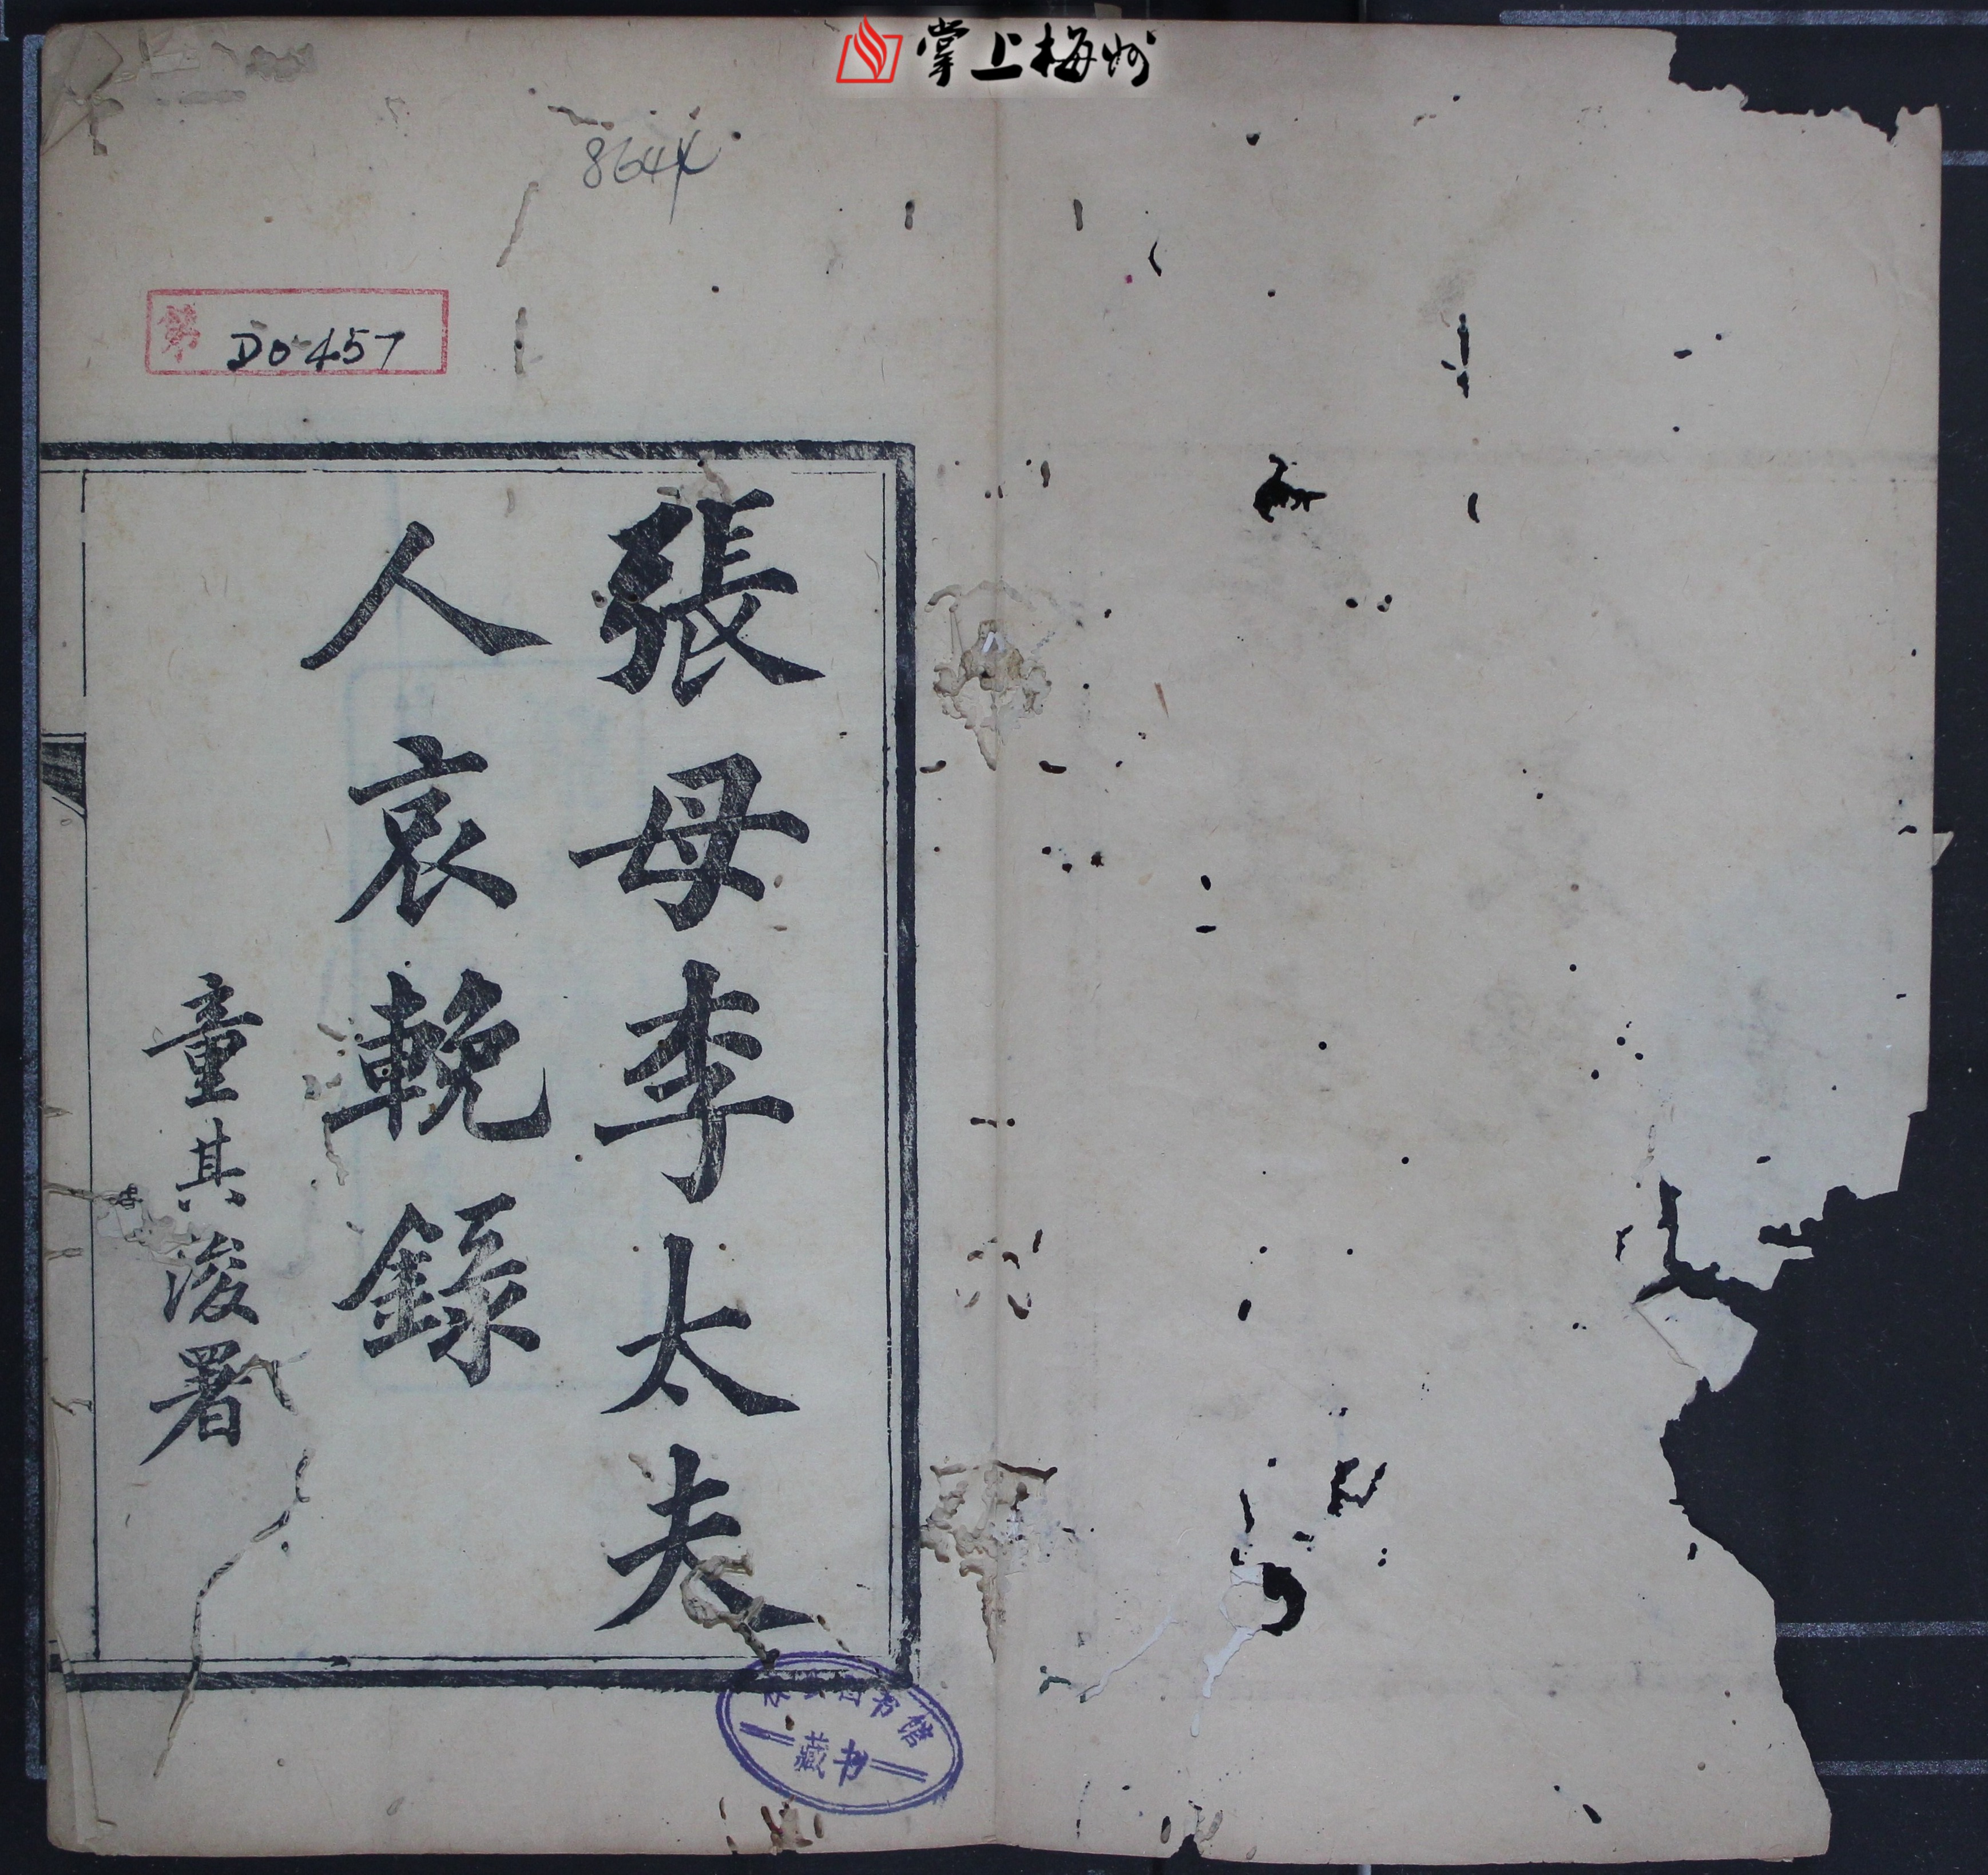 掌上梅州
8644
第 D0457
張母李太夫
人哀輓錄
童其浚署
书馆
藏书